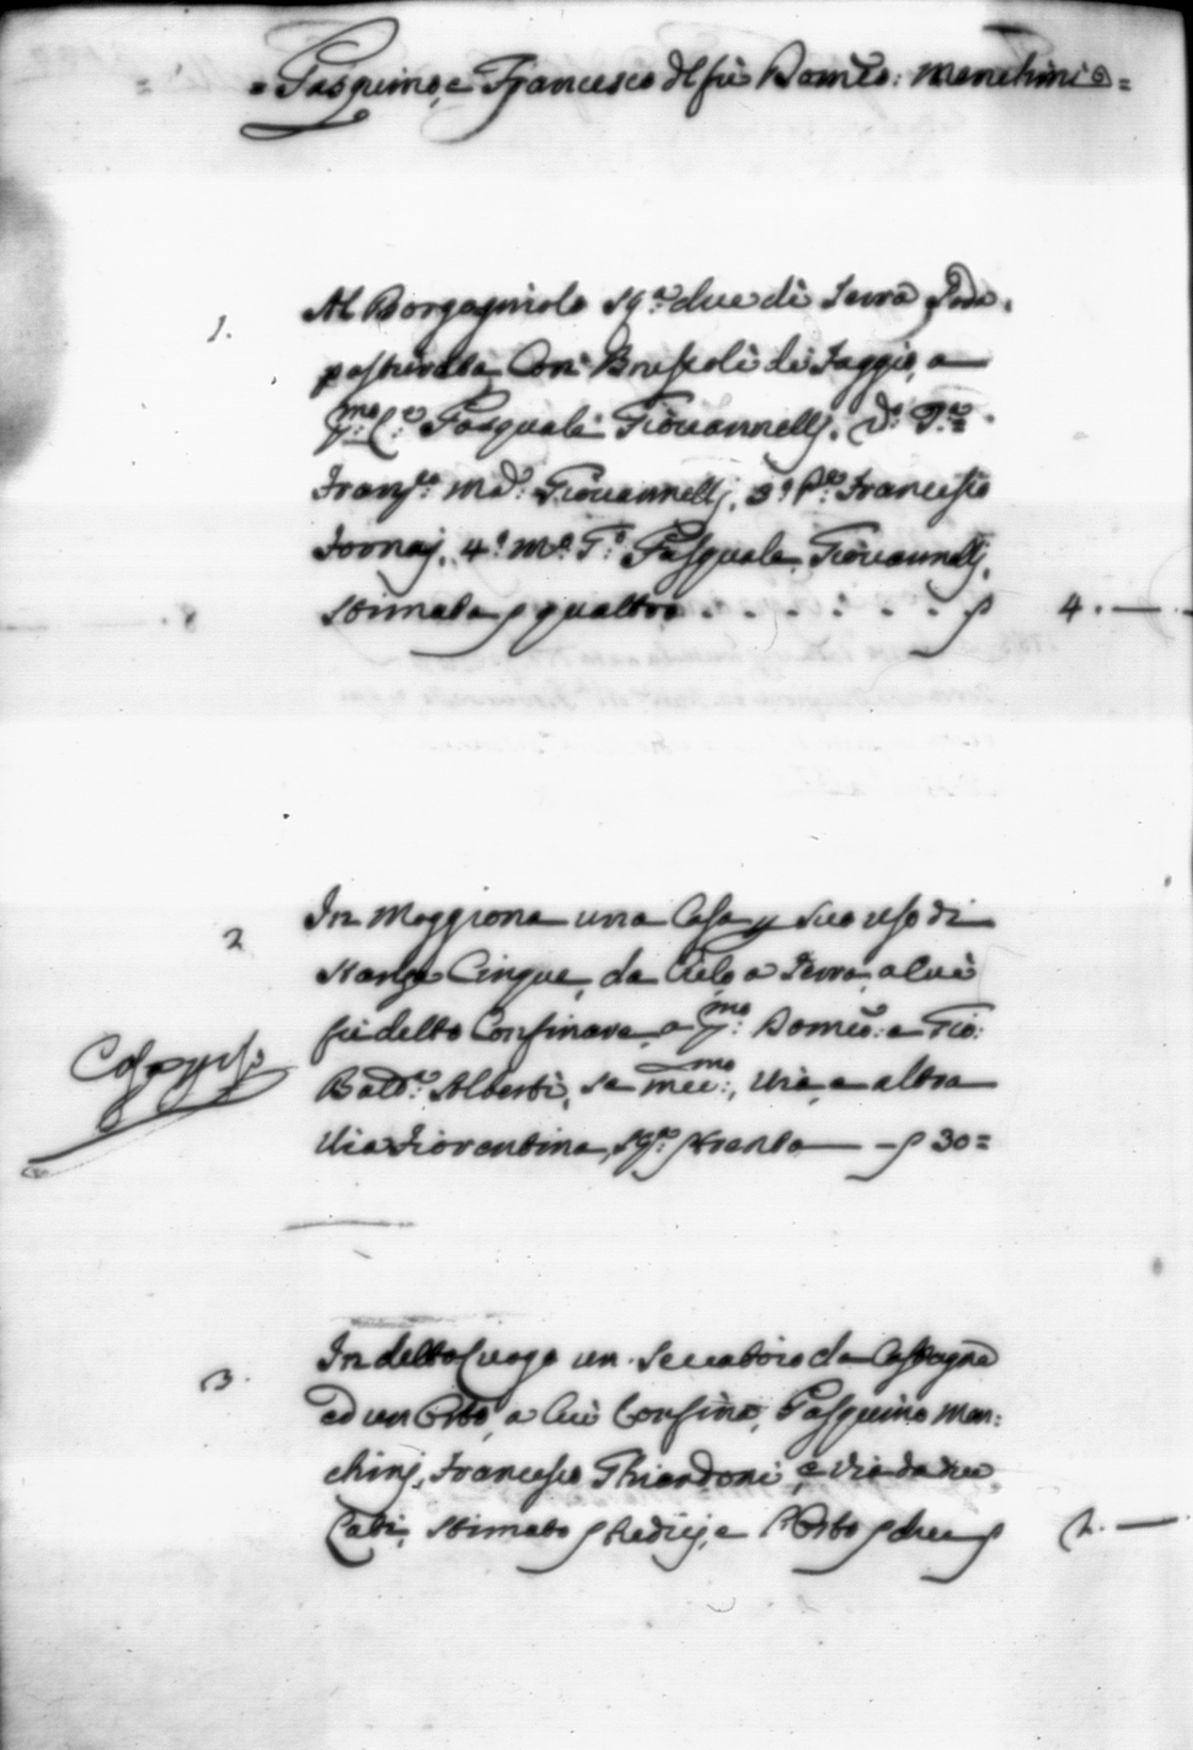 = Pasquino, e Francesco del fù Domco: Menchini =
1.
Al Borgagniolo Sqre due di Terra Soda,
pastivata Con Bruscoli di Faggio, a
pmo Co Pasquale Giovannellj,
Franco Giovannellj, 3o Francesco
Fornaj, 4o Pasquale Giovannellj,
stimata p quattro . . . . . . p 4. —
2
In Moggiona una Casa p suo uso di
stanze Cinque, da Cielo a Terra, a Cui
fù detto Confinava, a pmo: Domco: e Gio:
Battā Alberti, Se mede:mo, Via, e altra
Via Fiorentina, p trenta — p 30 =
3.
In detto Luogo un Seccatoio da Castagne
ed un Orto, a Cui Confina, Pasquino Men:
chinj, Francesco Ghiandoni, e Via da due
Lati, stimato p tredicj, e l'Orto p due p